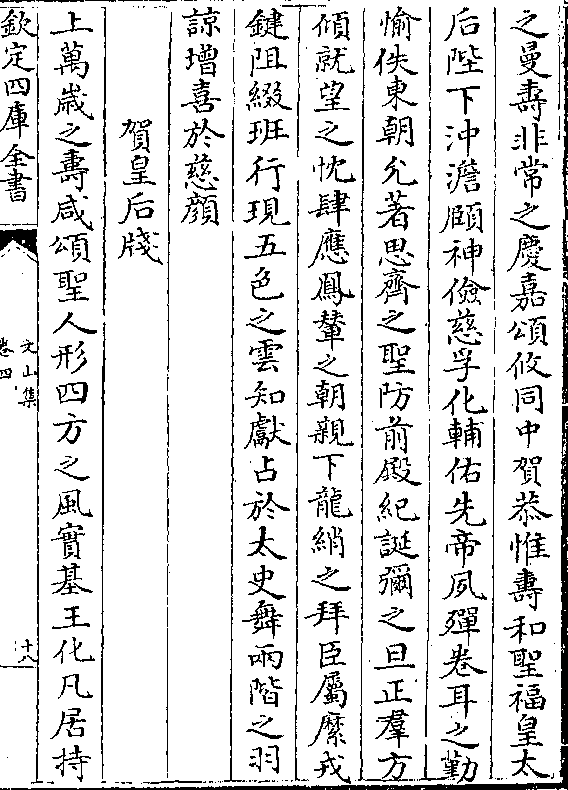 之曼壽非常之慶嘉頌攸同中賀恭惟壽和聖福皇太
后陛下沖澹頤神儉慈孚化輔佑先帝夙殫卷耳之勤
愉佚東朝允著思齊之聖防前殿紀誕彌之旦正羣方
傾就望之忱肆應鳳輦之朝親下龍綃之拜臣屬縻戎
鍵阻綴班行現五色之雲知獻占於太史舞兩階之羽
諒增喜於慈顔
賀皇后牋
上萬歲之壽咸頌聖人形四方之風實基王化凡居持
欽定四庫全書
文山集
卷四
十八